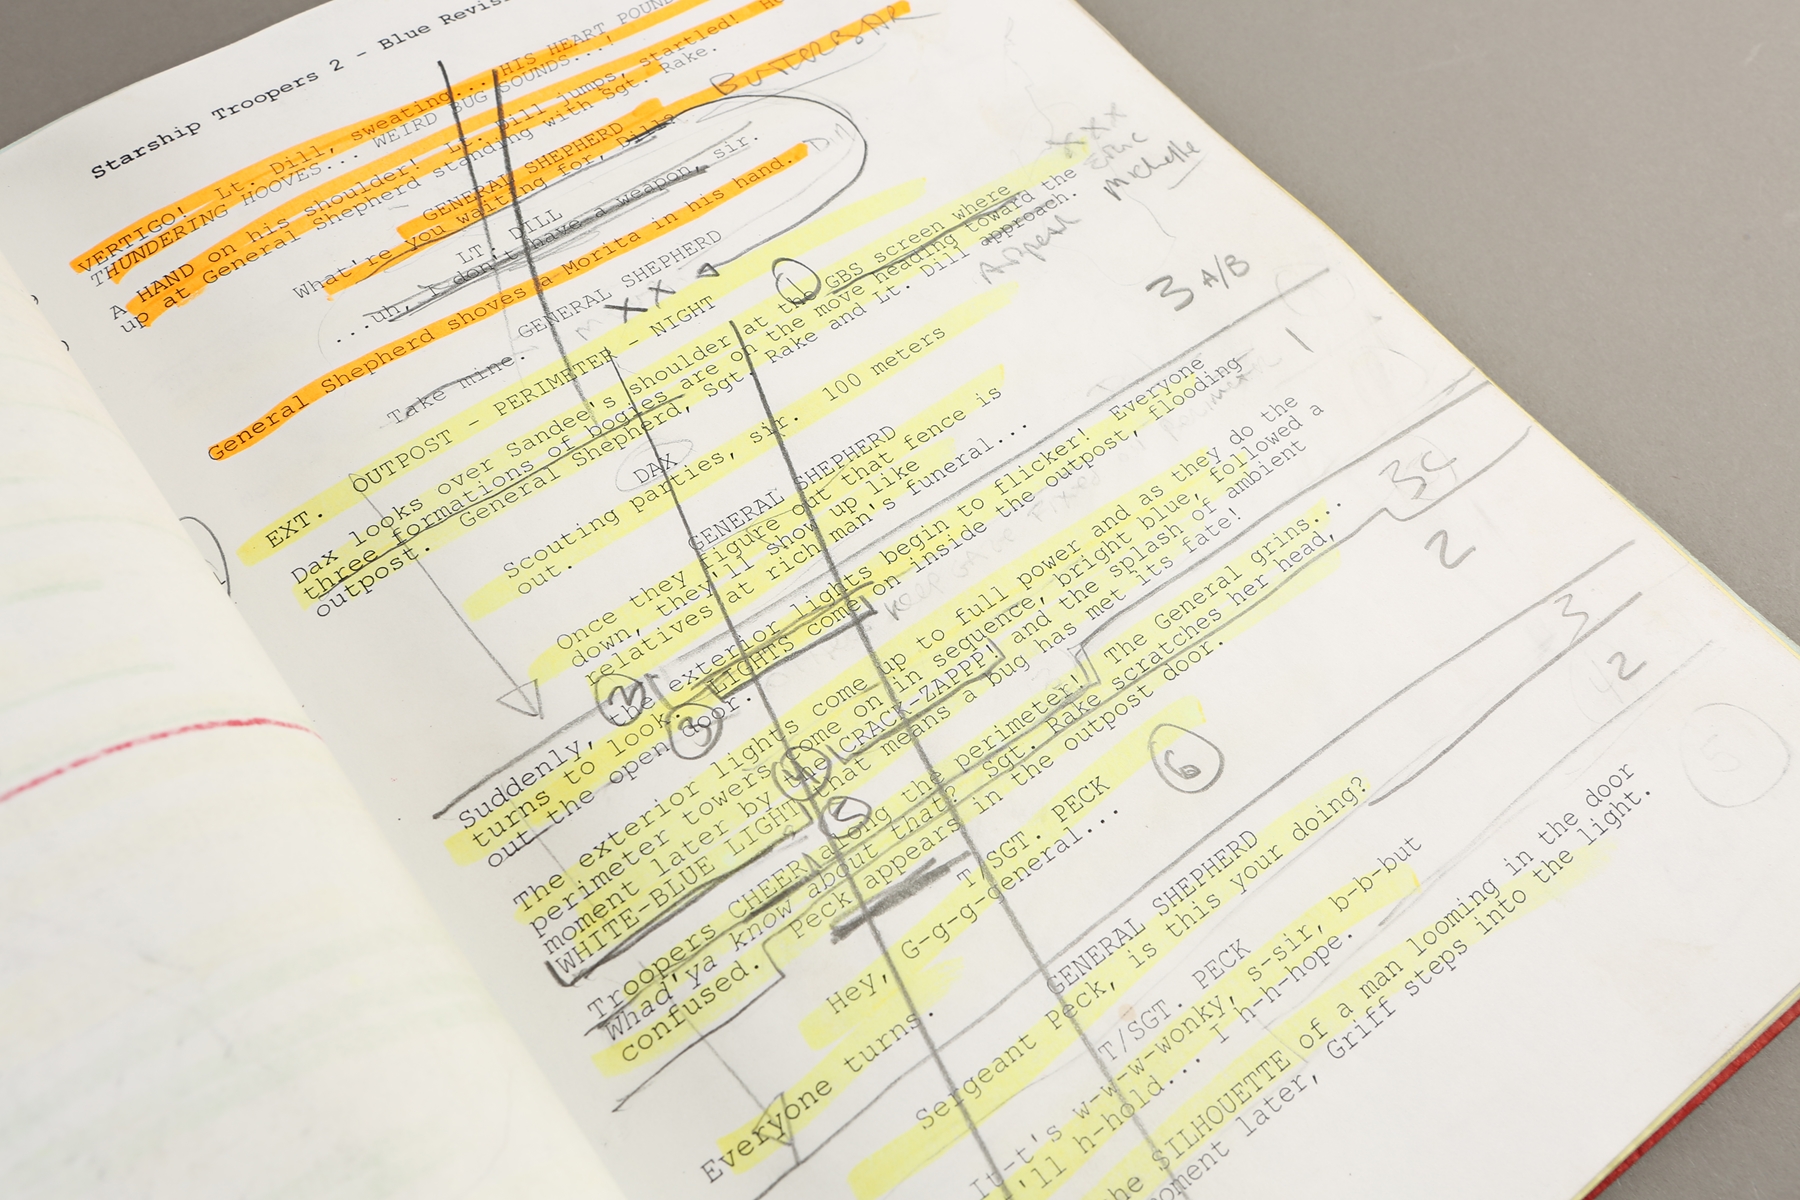 Starship Troopers 2 - Blue Revis
VERTIGO! Lt. Dill, sweating... HIS HEART POUND
THUNDERING HOOVES... WEIRD BUG SOUNDS...!
A HAND on his shoulder! Lt. Dill jumps, startled! He
up at General Shepherd standing with Sgt. Rake.
BUTTER BAR
GENERAL SHEPHERD
What're you waiting for, Dill?
LT. DILL
...uh, I don't have a weapon, sir.
General Shepherd shoves a Morita in his hand.
Dill
GENERAL SHEPHERD
Take mine.
XX
XXX
Michelle
EXT. OUTPOST - PERIMETER - NIGHT
1
Dax looks over Sandee's shoulder at the GBS screen where
three formations of bodies are on the move heading toward the
outpost. General Shepherd, Sgt. Rake and Lt. Dill approach.
3 A/B
1
DAX
Scouting parties, sir. 100 meters
out.
GENERAL SHEPHERD
Once they figure out that fence is
down, they'll show up like
relatives at rich man's funeral...
2
3
Suddenly, the exterior lights begin to flicker! Everyone
turns to look. LIGHTS come on inside the outpost, flooding
out the open door.
keep gate fixed
perimeter
The exterior lights come up to full power and as they do the
perimeter towers come on in sequence, bright blue, followed a
moment later by the CRACK-ZAPP! and the splash of ambient
WHITE-BLUE LIGHT that means a bug has met its fate!
4
5
2
Troopers CHEER along the perimeter! The General grins...
Whad'ya know about that? Sgt. Rake scratches her head,
confused. Peck appears in the outpost door.
6
3
42
5
T/SGT. PECK
Hey, G-g-g-general...
Everyone turns.
GENERAL SHEPHERD
Sergeant Peck, is this your doing?
T/SGT. PECK
It-t's w-w-w-wonky, s-sir, b-b-but
'll h-hold... I h-h-hope.
he SILHOUETTE of a man looming in the door
oment later, Griff steps into the light.